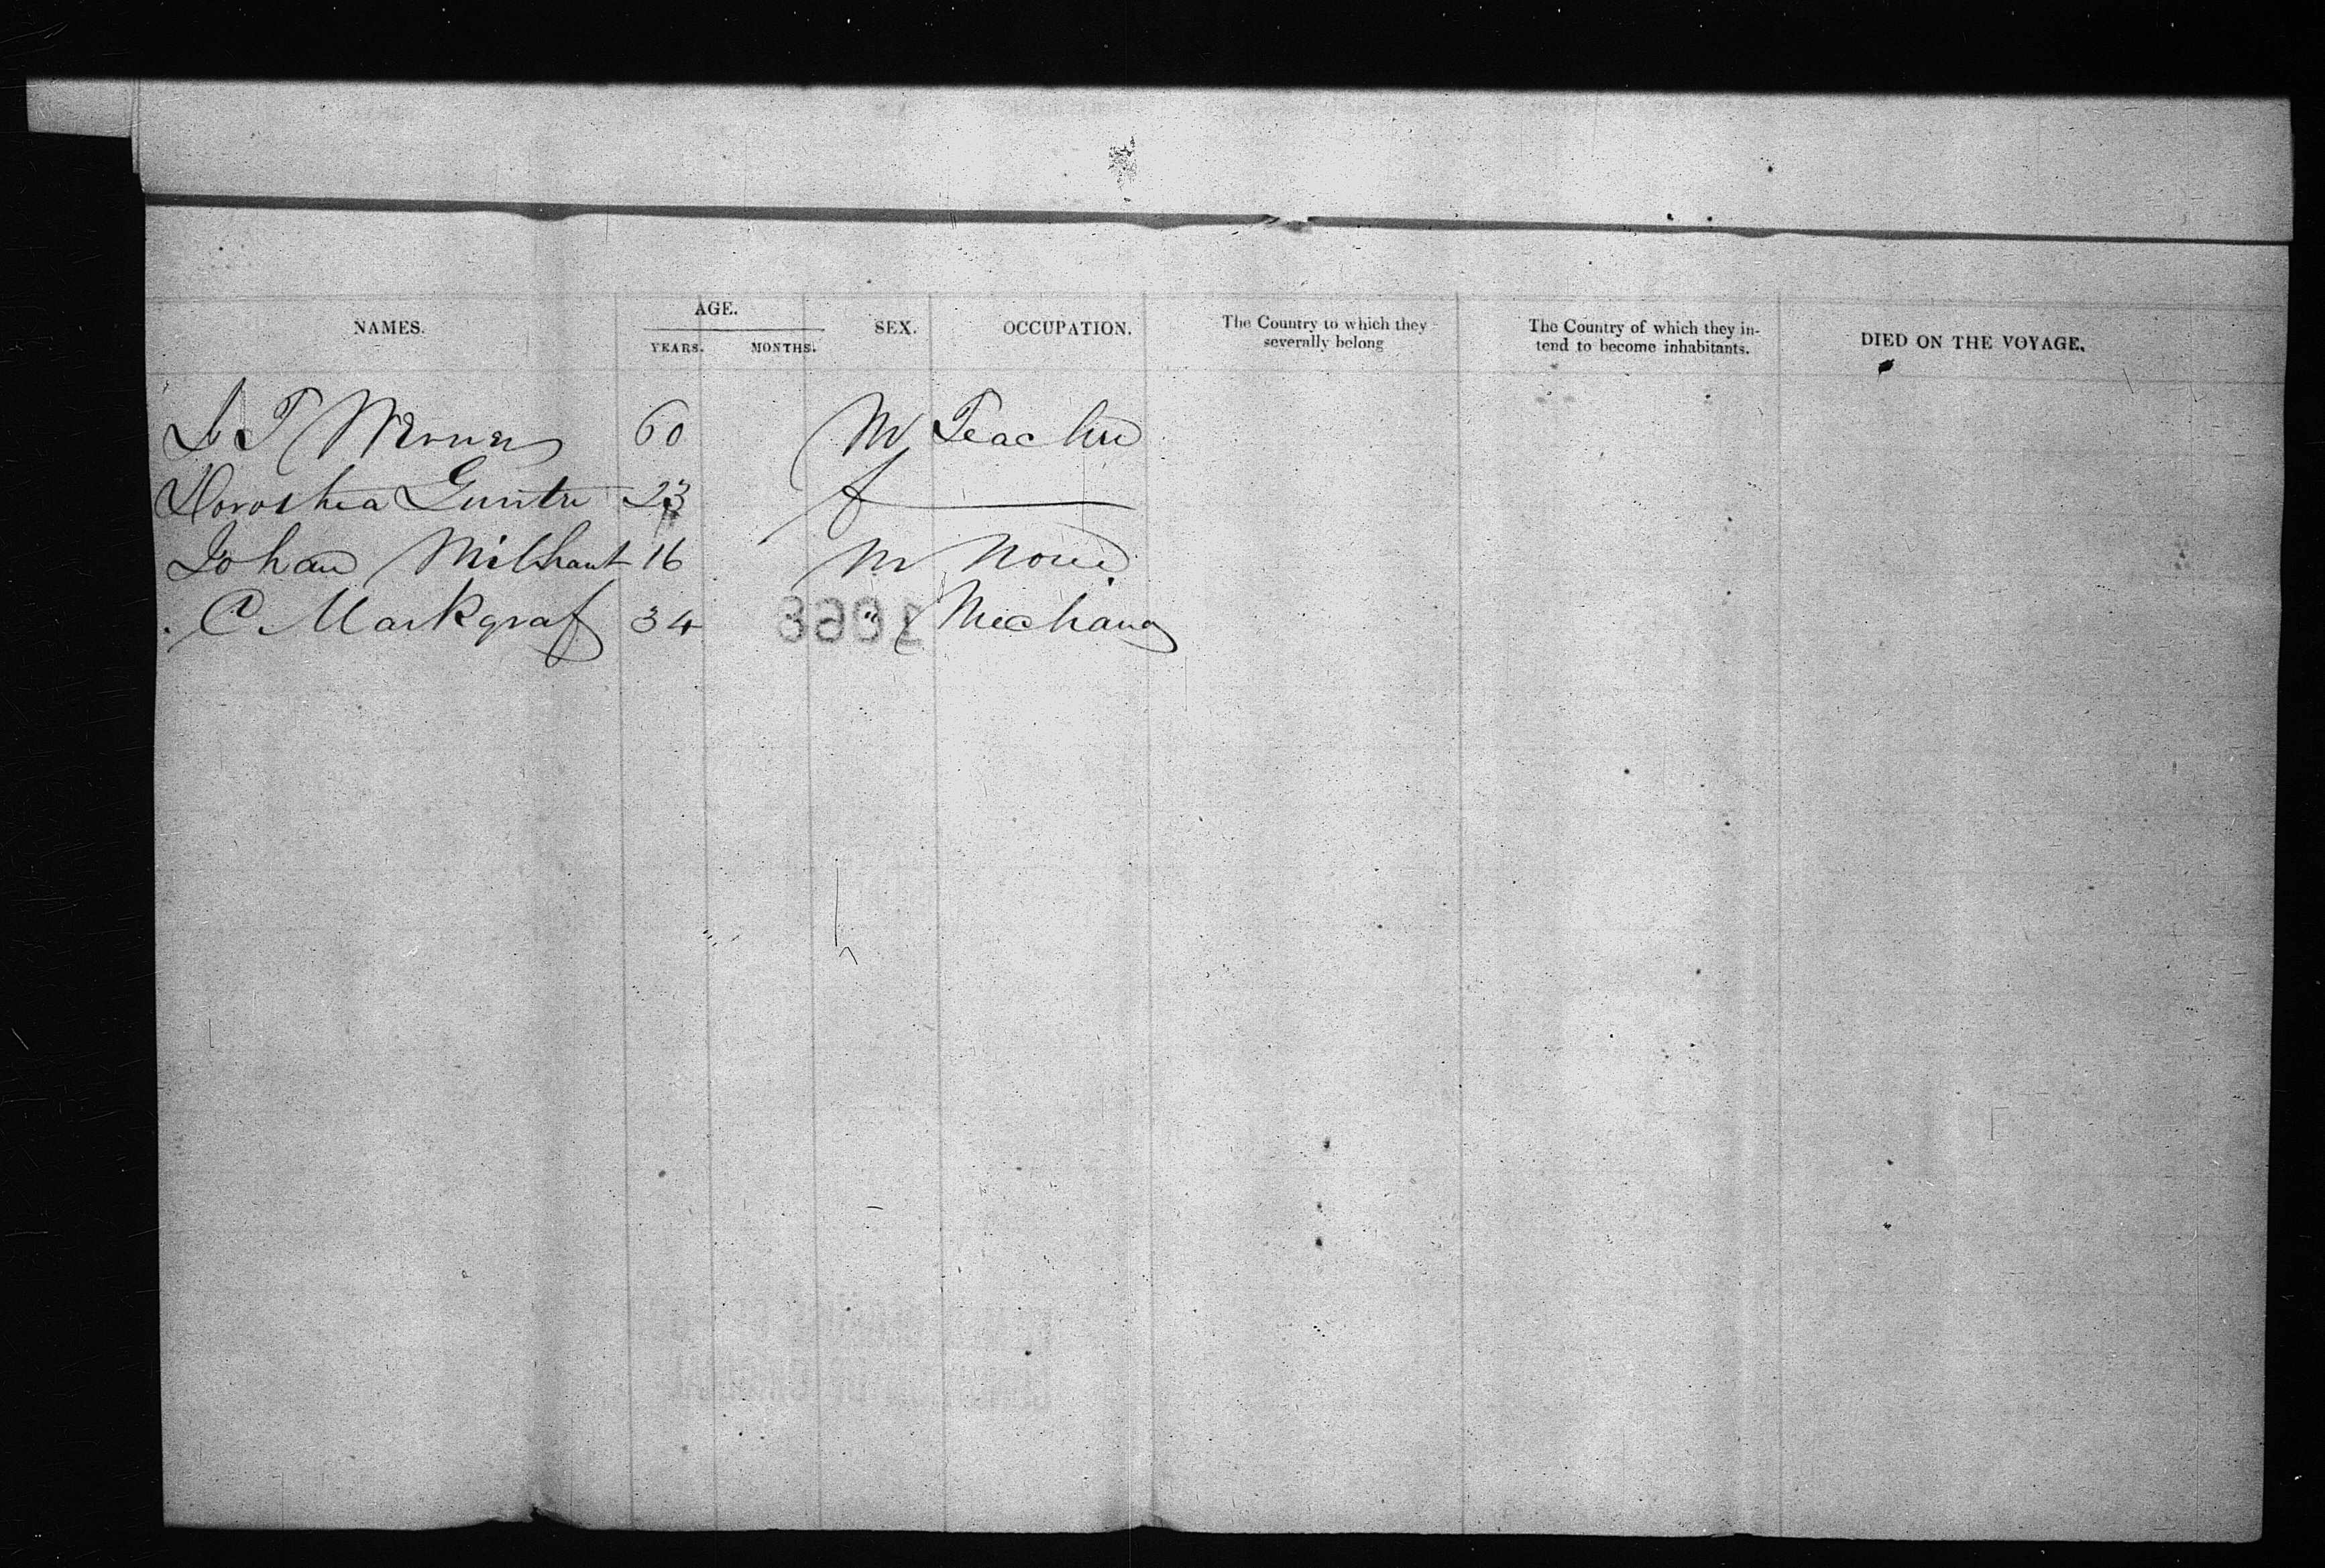 NAMES. AGE. SEX. OCCUPATION. The Country to which they severally belong The Country of which they in-tend to become inhabitants. DIED ON THE VOYAGE.
YEARS. MONTHS.
T Werner 60 M Teacher
Dorothea Guntru 23 f
Johan Milhaut 16 M None
C. Markgraf 34 " Mechanc